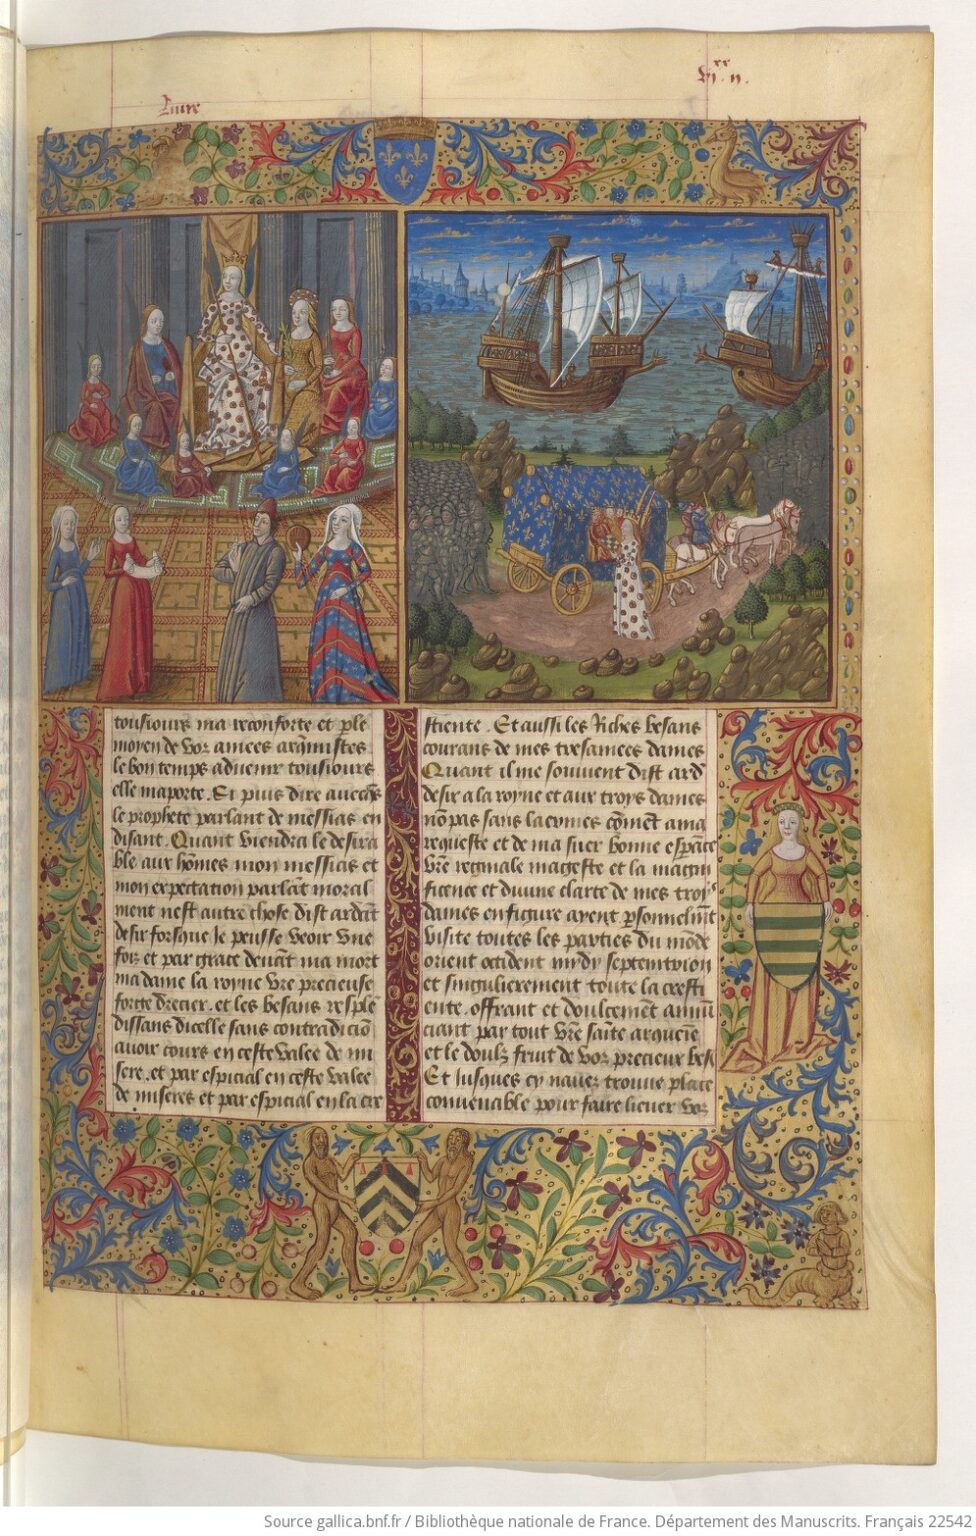 Liure
vi xx ii.
tousiours ma reconforte et ple
moyen de voz amees arquimistes
le bon temps aduenir tousiours
elle maporte. Et puis dire auecqs
le prophete parlant de messias en
disant. Quant viendra le desira
ble aux hōmes mon messias et
mon expectation parlāt moral
ment nest autre chose dist ardāt
desir forsque Je peusse veoir vne
foiz et par grace deuāt ma mort
ma dame la royne vr̄e precieuse
forge drecier. et les besans resplē
dissans dicelle sans contradiciō
auoir cours en ceste valee de mi
sere. et par especial en ceste valee
de miseres et par especial en la cre
stiente. Et aussi les Riches besans
courans de mes tresamees dames
Quant il me souuient dist ard
desir a la royne et aux troys dames
nō pas sans lacrimes cōmēt a ma
requeste et de ma suer bonne espāce
vr̄e reginale mageste et la magni
ficence et diuine clarte de mes troys
dames en figure ayent psonnelmt
visite toutes les parties du mōde
orient occident midy septemtrion
et singulierement toute la cresti
ente. offrant et doulcemēt anun
ciant par tout vr̄e saīte arquemie
et le doulz fruit de voz precieux bes
Et Jusques cy nauez trouue place
conuenable pour faire leuer voz
Source gallica.bnf.fr / Bibliothèque nationale de France. Département des Manuscrits. Français 22542